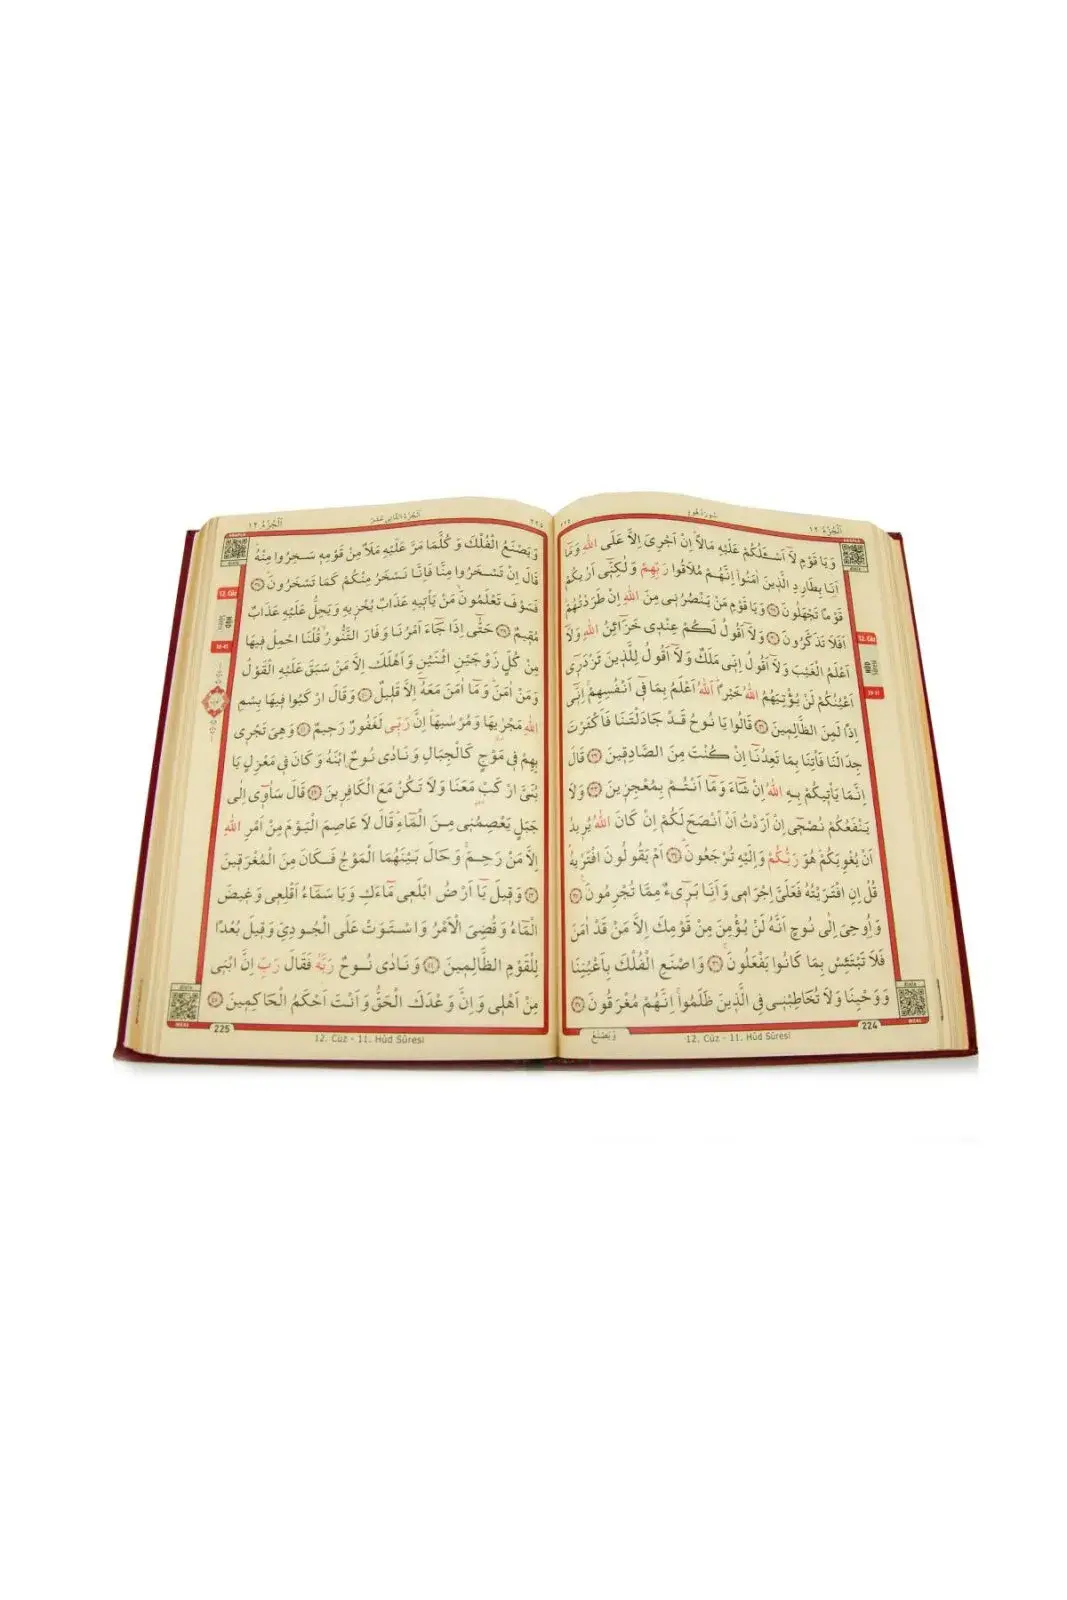 اَلْجُزْءُ ١٢
سُورَةُ هُودٍ
٢٢٤
وَيَا قَوْمِ لَٓا اَسْـَٔلُكُمْ عَلَيْهِ مَالًاۜ اِنْ اَجْرِيَ اِلَّا عَلَى اللّٰهِ وَمَٓا
اَنَا۬ بِطَارِدِ الَّذ۪ينَ اٰمَنُواۜ اِنَّهُمْ مُلَاقُوا رَبِّهِمْ وَلٰكِنّ۪ٓي اَرٰيكُمْ
قَوْمًا تَجْهَلُونَ ﴿٢٩﴾ وَيَا قَوْمِ مَنْ يَنْصُرُن۪ي مِنَ اللّٰهِ اِنْ طَرَدْتُهُمْۜ
اَفَلَا تَذَكَّرُونَ ﴿٣٠﴾ وَلَٓا اَقُولُ لَكُمْ عِنْد۪ي خَزَٓائِنُ اللّٰهِ وَلَٓا
اَعْلَمُ الْغَيْبَ وَلَٓا اَقُولُ اِنّ۪ي مَلَكٌ وَلَٓا اَقُولُ لِلَّذ۪ينَ تَزْدَر۪ٓي
اَعْيُنُكُمْ لَنْ يُؤْتِيَهُمُ اللّٰهُ خَيْرًاۜ اَللّٰهُ اَعْلَمُ بِمَا ف۪ٓي اَنْفُسِهِمْۚ اِنّ۪ٓي
اِذًا لَمِنَ الظَّالِم۪ينَ ﴿٣١﴾ قَالُوا يَا نُوحُ قَدْ جَادَلْتَنَا فَاَكْثَرْتَ
جِدَالَنَا فَأْتِنَا بِمَا تَعِدُنَٓا اِنْ كُنْتَ مِنَ الصَّادِق۪ينَ ﴿٣٢﴾ قَالَ
اِنَّمَا يَأْت۪يكُمْ بِهِ اللّٰهُ اِنْ شَٓاءَ وَمَٓا اَنْتُمْ بِمُعْجِز۪ينَ ﴿٣٣﴾ وَلَا
يَنْفَعُكُمْ نُصْح۪ٓي اِنْ اَرَدْتُ اَنْ اَنْصَحَ لَكُمْ اِنْ كَانَ اللّٰهُ يُر۪يدُ
اَنْ يُغْوِيَكُمْۜ هُوَ رَبُّكُمْ وَاِلَيْهِ تُرْجَعُونَ ﴿٣٤﴾ اَمْ يَقُولُونَ افْتَرٰيهُۜ
قُلْ اِنِ افْتَرَيْتُهُ فَعَلَيَّ اِجْرَام۪ي وَاَنَا۬ بَر۪ٓيءٌ مِمَّا تُجْرِمُونَ۟ ﴿٣٥﴾
وَاُو۫حِيَ اِلٰى نُوحٍ اَنَّهُ لَنْ يُؤْمِنَ مِنْ قَوْمِكَ اِلَّا مَنْ قَدْ اٰمَنَ
فَلَا تَبْتَئِسْ بِمَا كَانُوا يَفْعَلُونَۚ ﴿٣٦﴾ وَاصْنَعِ الْفُلْكَ بِاَعْيُنِنَا
وَوَحْيِنَا وَلَا تُخَاطِبْن۪ي فِي الَّذ۪ينَ ظَلَمُواۚ اِنَّهُمْ مُغْرَقُونَ ﴿٣٧﴾
وَيَصْنَعُ
224
12. Cüz - 11. Hûd Sûresi
12. Cüz
HÛD
٢٢٥
اَلْجُزْءُ الثَّانِي عَشَرَ
اَلْجُزْءُ ١٢
وَيَصْنَعُ الْفُلْكَ وَكُلَّمَا مَرَّ عَلَيْهِ مَلَاٌ مِنْ قَوْمِه۪ سَخِرُوا مِنْهُۜ
قَالَ اِنْ تَسْخَرُوا مِنَّا فَاِنَّا نَسْخَرُ مِنْكُمْ كَمَا تَسْخَرُونَۜ ﴿٣٨﴾
فَسَوْفَ تَعْلَمُونَۙ مَنْ يَأْت۪يهِ عَذَابٌ يُخْز۪يهِ وَيَحِلُّ عَلَيْهِ عَذَابٌ
مُق۪يمٌ ﴿٣٩﴾ حَتّٰٓى اِذَا جَٓاءَ اَمْرُنَا وَفَارَ التَّنُّورُۙ قُلْنَا احْمِلْ ف۪يهَا
مِنْ كُلٍّ زَوْجَيْنِ اثْنَيْنِ وَاَهْلَكَ اِلَّا مَنْ سَبَقَ عَلَيْهِ الْقَوْلُ
وَمَنْ اٰمَنَۜ وَمَٓا اٰمَنَ مَعَهُٓ اِلَّا قَل۪يلٌ ﴿٤٠﴾ وَقَالَ ارْكَبُوا ف۪يهَا بِسْمِ
اللّٰهِ مَجْرٰ۪ۙيهَا وَمُرْسٰيهَاۜ اِنَّ رَبّ۪ي لَغَفُورٌ رَح۪يمٌ ﴿٤١﴾ وَهِيَ تَجْر۪ي
بِهِمْ ف۪ي مَوْجٍ كَالْجِبَالِ وَنَادٰى نُوحٌۨ ابْنَهُ وَكَانَ ف۪ي مَعْزِلٍ يَا
بُنَيَّ ارْكَبْ مَعَنَا وَلَا تَكُنْ مَعَ الْكَافِر۪ينَ ﴿٤٢﴾ قَالَ سَاٰو۪ٓي اِلٰى
جَبَلٍ يَعْصِمُن۪ي مِنَ الْمَٓاءِۜ قَالَ لَا عَاصِمَ الْيَوْمَ مِنْ اَمْرِ اللّٰهِ
اِلَّا مَنْ رَحِمَۚ وَحَالَ بَيْنَهُمَا الْمَوْجُ فَكَانَ مِنَ الْمُغْرَق۪ينَ
﴿٤٣﴾ وَق۪يلَ يَٓا اَرْضُ ابْلَع۪ي مَٓاءَكِ وَيَا سَمَٓاءُ اَقْلِع۪ي وَغ۪يضَ
الْمَٓاءُ وَقُضِيَ الْاَمْرُ وَاسْتَوَتْ عَلَى الْجُودِيِّ وَق۪يلَ بُعْدًا
لِلْقَوْمِ الظَّالِم۪ينَ ﴿٤٤﴾ وَنَادٰى نُوحٌ رَبَّهُ فَقَالَ رَبِّ اِنَّ ابْن۪ي
مِنْ اَهْل۪ي وَاِنَّ وَعْدَكَ الْحَقُّ وَاَنْتَ اَحْكَمُ الْحَاكِم۪ينَ ﴿٤٥﴾
225
12. Cüz - 11. Hûd Sûresi
12. Cüz
HÛD